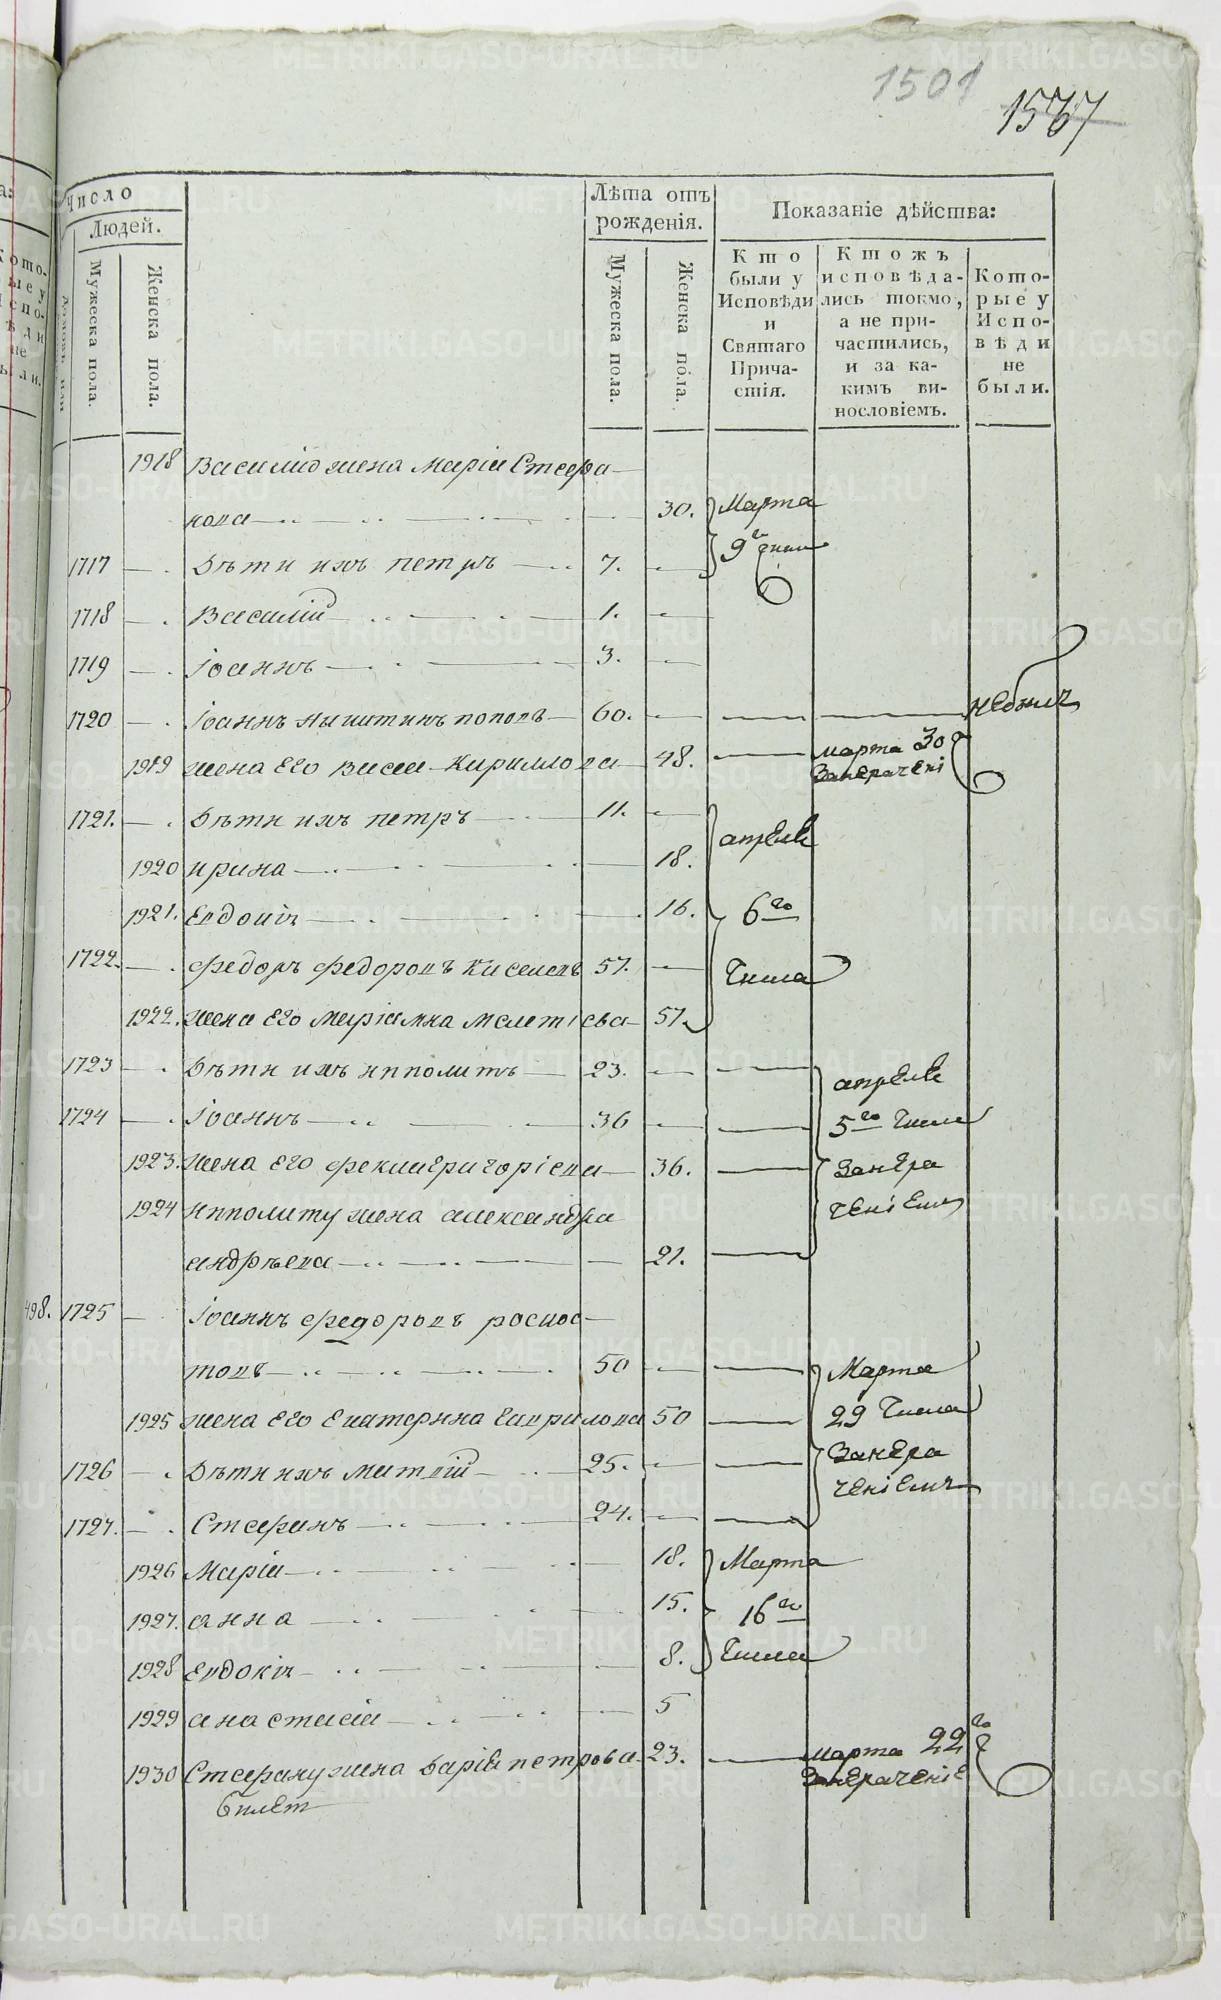 1501
1537
Число
Людей.
Мужеска пола.
Женска пола.
Лѣта отъ рожденія.
Мужеска пола.
Женска пола.
Показаніе дѣйства:
Кто были у Исповѣди и Святаго Причастія.
Ктожъ исповѣдались токмо, а не причастились, и за какимъ винословіемъ.
Которые у Исповѣди не были.
1918 Василію жена Марія Стефа
нова 30. Марта
1717 Дѣти ихъ Петръ 7. 9го числа
1718 Василій 1.
1719 Іоаннъ 3.
1720 Іоаннъ Никитинъ Поповъ 60. небылъ
1919 жена его Васси Кириллова 48. марта 30
занерачені
1721. Дѣти ихъ Петръ 11.
апреля
1920 Ирина 18.
1921. Евдокія 16. 6го
1722. Федоръ Федоровъ Киселевъ 57. числа
1922. жена его Маріамна Мелетіева 57.
1723 Дѣти ихъ Ипполитъ 23. апреля
1724 Іоаннъ 36 5го числа
1923. жена его Фекла Григоріева 36. занера
1924 Ипполиту жена Александра ченіемъ
Андрѣева 21.
498. 1725 Іоаннъ Федоровъ Роспос
товъ 50 Марта
1925 жена его Екатерина Гаврилова 50 29 числа
1726 Дѣти ихъ Матвій 25. занера
ченіемъ
1727. Стефанъ 24.
1926 Марія 18. Марта
1927. Анна 15. 16го
1928 Евдокія 8. числа
1929 Анастасія 5
1930 Стефану жена Дарія Петрова 23. марта 22го
занераченіе
билет